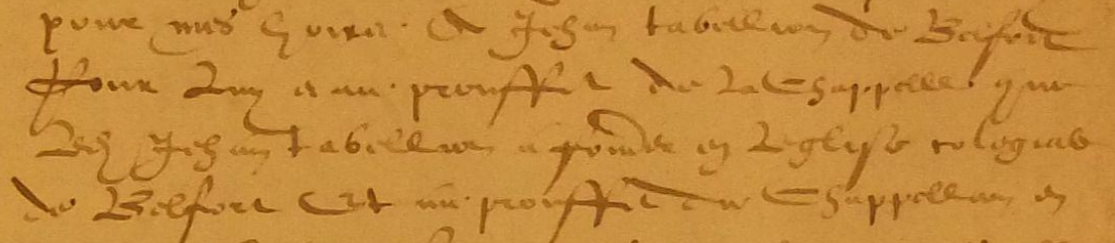 pour mes hoirs A Jehan tabellion de Belfort
Pour Luy et au prouffit de La Chappelle que
Led Jehan tabellion a fonder en Leglise colegiale
de Belfort Et au prouffit du Chappellain en